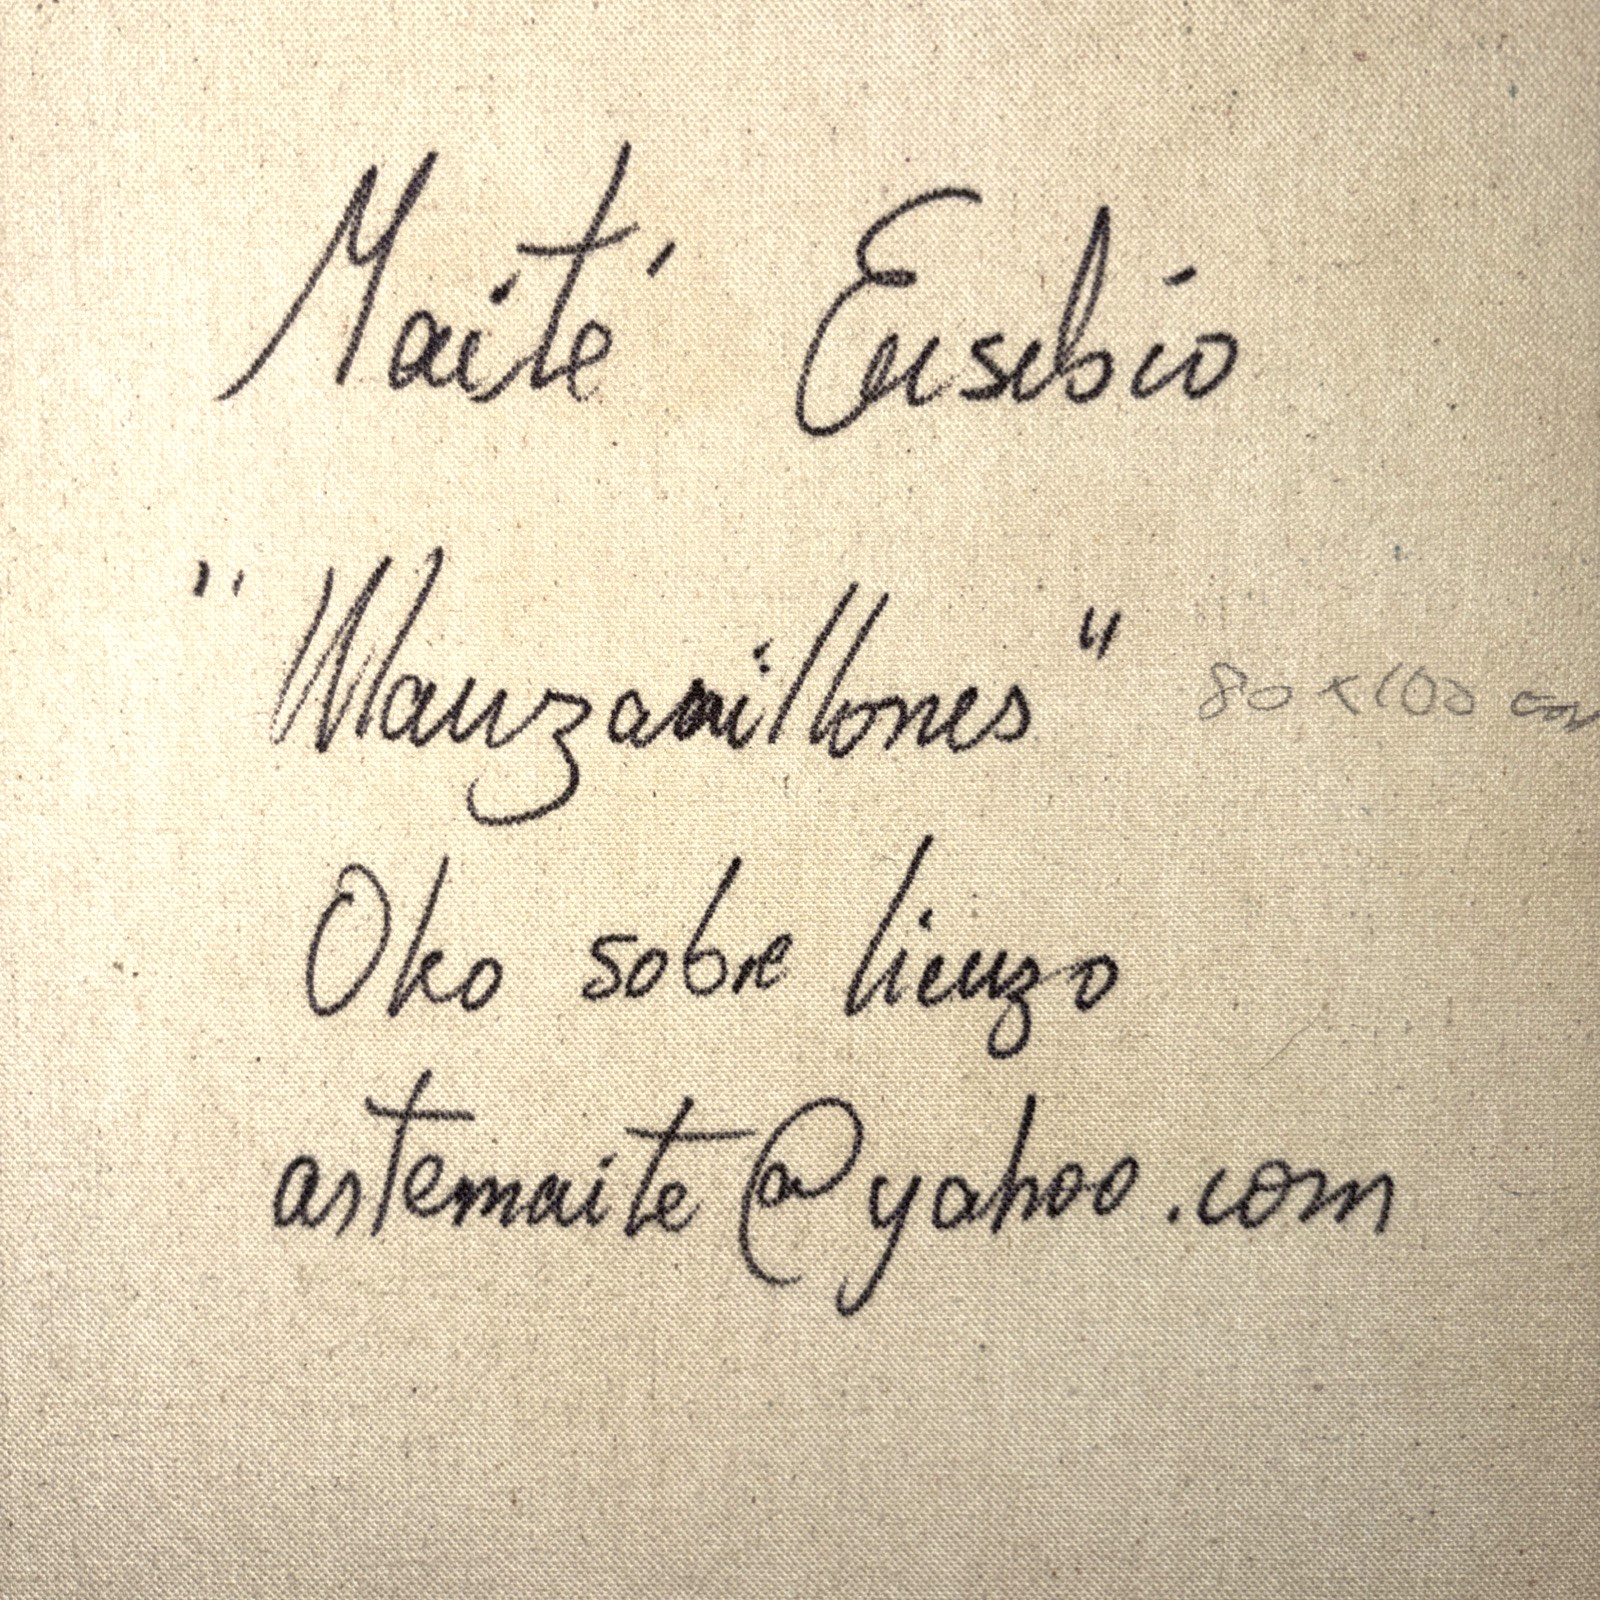 Maité Eusebio
"Manzanillones" 80 x 100 cm
Oleo sobre lienzo
artemaite@yahoo.com